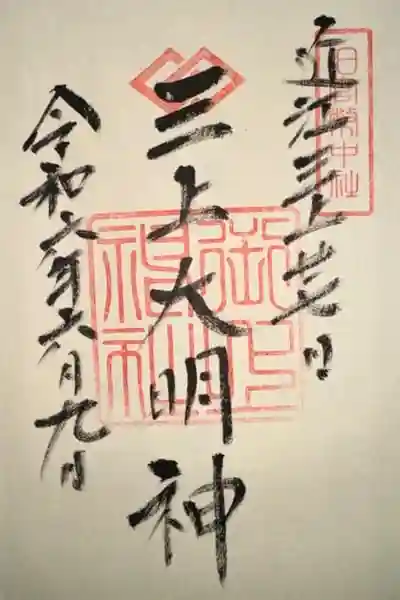 旧官幣中社
近江三上
三上大明神
御上神社
令和六年六月九日